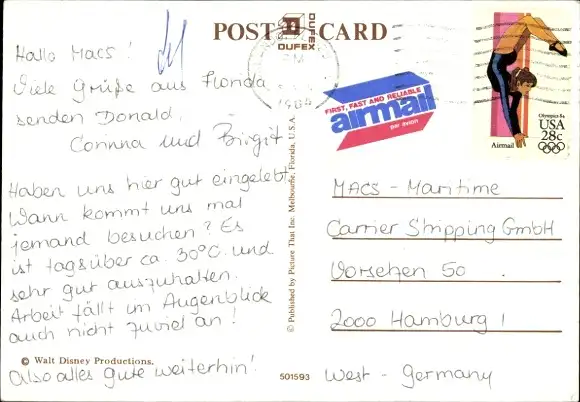 POST CARD
DUFEX
DUFEX
Hallo Macs!
Viele Grüße aus Florida
senden Donald,
Corinna und Birgit
Haben uns hier gut eingelebt.
Wann kommt uns mal
jemand besuchen? Es
ist tagsüber ca. 30°C und
sehr gut auszuhalten.
Arbeit fällt im Augenblick
auch nicht zuviel an!
© Walt Disney Productions.
Also alles gute weiterhin!
© Published by Picture That Inc Melbourne, Florida, U.S.A.
501593
PM
1984
FIRST, FAST AND RELIABLE
airmail
par avion
Olympics 84
USA
28c
Airmail
MACS - Maritime
Carrier Shipping GmbH
Vorsetzen 50
2000 Hamburg 1
West - Germany